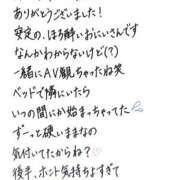 ありがとうございました！
安定の、ほろ酔いおにいさんです
なんかわからないけど(?)
一緒にAV観ちゃったね笑
ベッドで隣にいたら
いつの間にか始まっちゃってた💦
ずーっと硬いままなの
気付いてたからね？♡
後半、ホント気持ちよすぎて